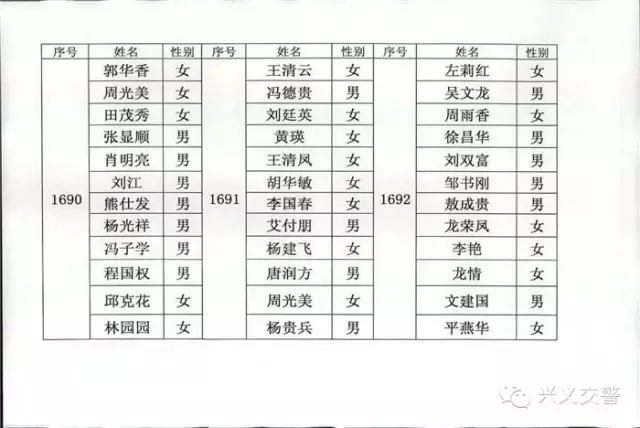 序号 姓名 性别 序号 姓名 性别 序号 姓名 性别
郭华香 女 王清云 女 左莉红 女
周光美 女 冯德贵 男 吴文龙 男
田茂秀 女 刘廷英 女 周雨香 女
张显顺 男 黄瑛 女 徐昌华 男
肖明亮 男 王清凤 女 刘双富 男
刘江 男 胡华敏 女 邹书刚 男
1690 熊仕发 男 1691 李国春 女 1692 敖成贵 男
杨光祥 男 艾付朋 男 龙荣凤 女
冯子学 男 杨建飞 女 李艳 女
程国权 男 唐润方 男 龙情 女
邱克花 女 周光美 女 文建国 男
林园园 女 杨贵兵 男 平燕华 女
兴义交警